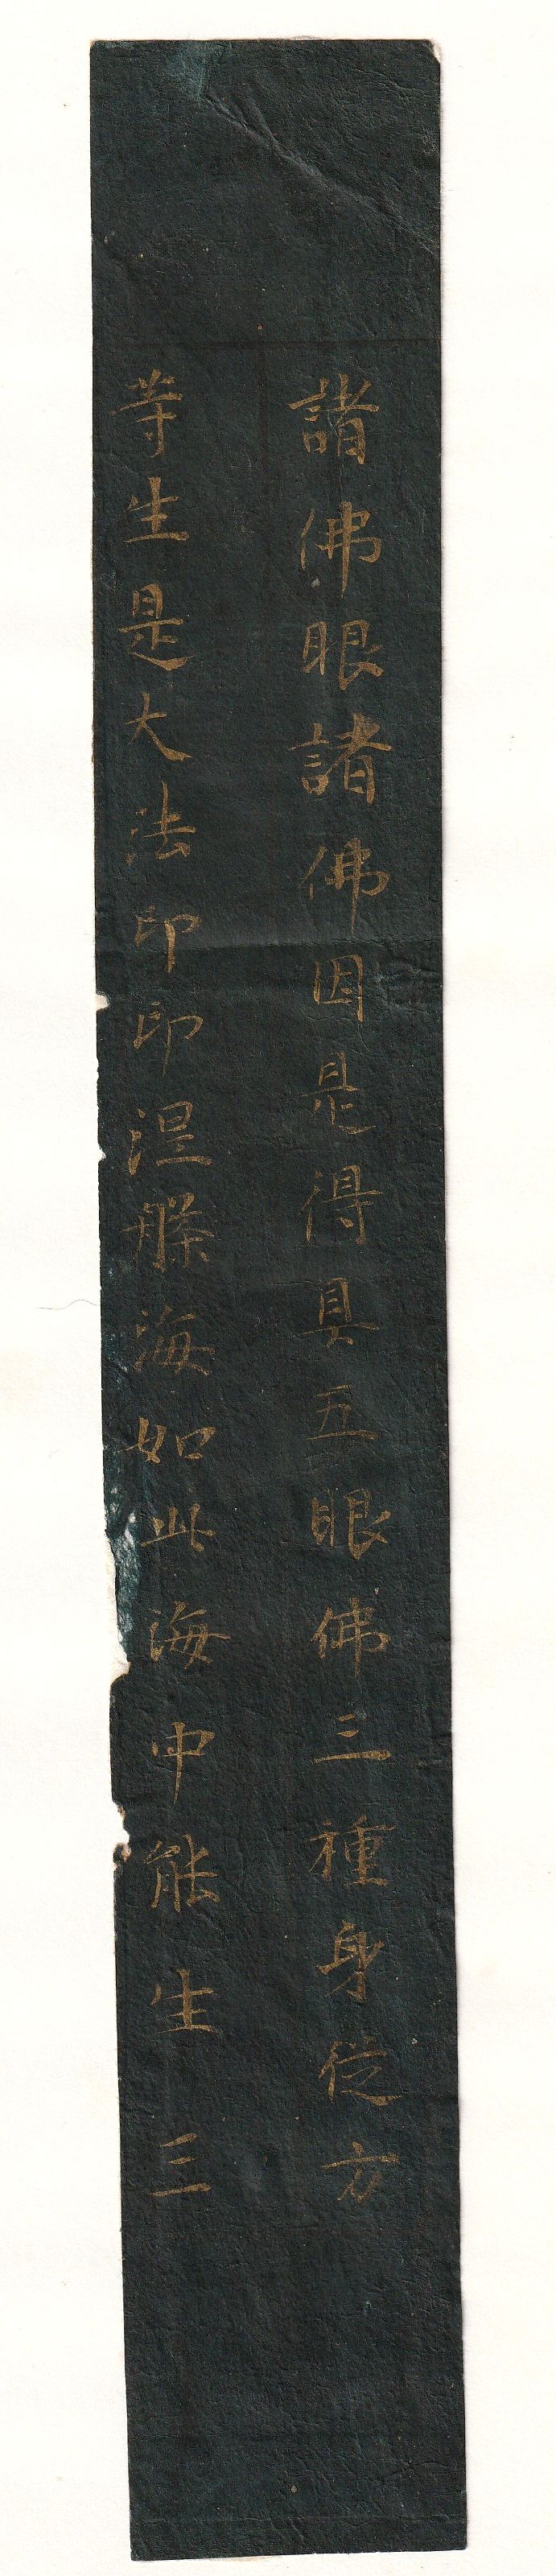 諸佛眼諸佛因是得具五眼佛三種身従方
等生是大法印印涅槃海如此海中能生三